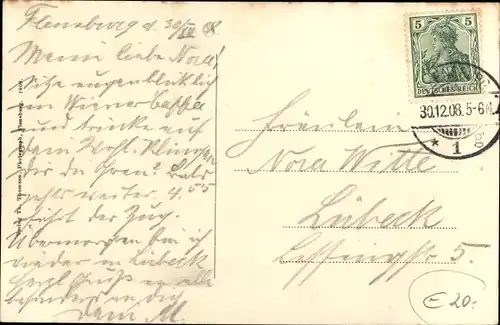 Flensburg d. 30/XII 08
Meine liebe Nora!
Sitze augenblicklich
im Wiener Caffee
und trinke auf
Dein Wohl. Klingen
Dir die Ohren? Bald
gehts weiter. 4.55
fährt der Zug.
Übermorgen bin ich
wieder in Lübeck
Herzl. Gruß an alle
besonders an Dich
Dein M.
5 5
DEUTSCHES REICH
30.12.08. 5-6 N.
* 1
Fräulein
Nora Witte
Lübeck
Lessingstr. 5.
€ 20.-